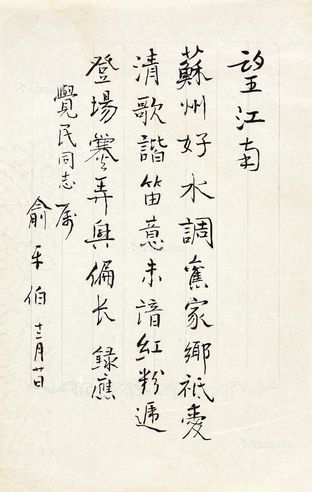 望江南
蘇州好水調舊家鄉祗愛
清歌諧笛意未諳紅粉遞
登場爨弄興偏长 録應
覺民同志属
俞平伯 十二月廿日